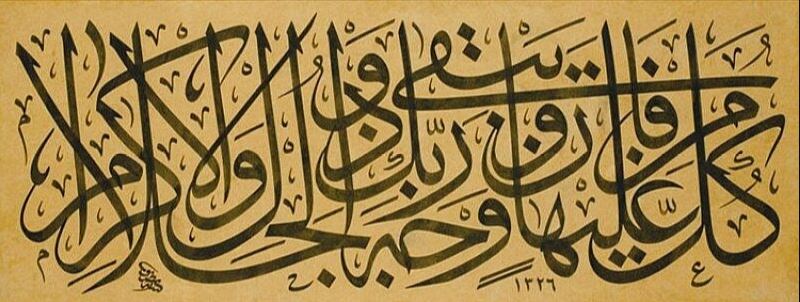 كُلُّ مَنْ عَلَيْهَا فَانٍ وَيَبْقَى وَجْهُ رَبِّكَ ذُو الْجَلَالِ وَالْإِكْرَامِ
١٣٢٦